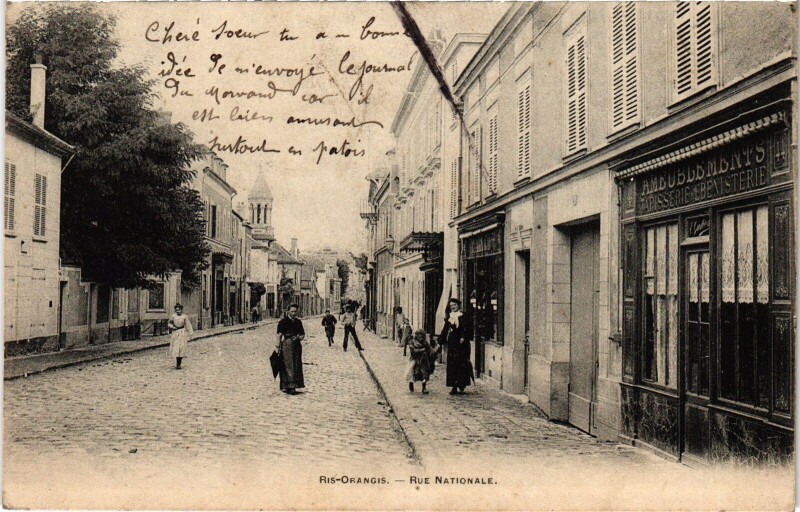 Cheré soeur tu a eu bonne
idée de m'envoyé le journal
du Morvand car il
est bien amusant
surtout en patois
AMEUBLEMENTS
TAPISSERIE & ÉBÉNISTERIE
RIS-ORANGIS. — RUE NATIONALE.